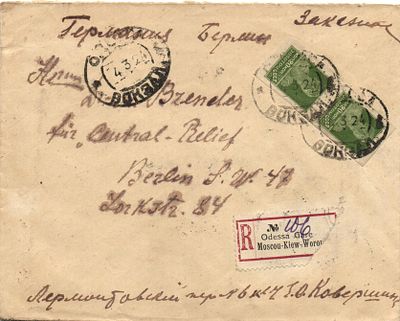 Германия Берлин Заказное
ОДЕССА
4.3.24
ВОКЗАЛ
Herrn
Dr. Brender
für "Central-Relief
Berlin S.W. 47
Yorkstr. 84
R № 106
Odessa Gare
Moscou-Kiew-Woron
Лермонтовский пер.